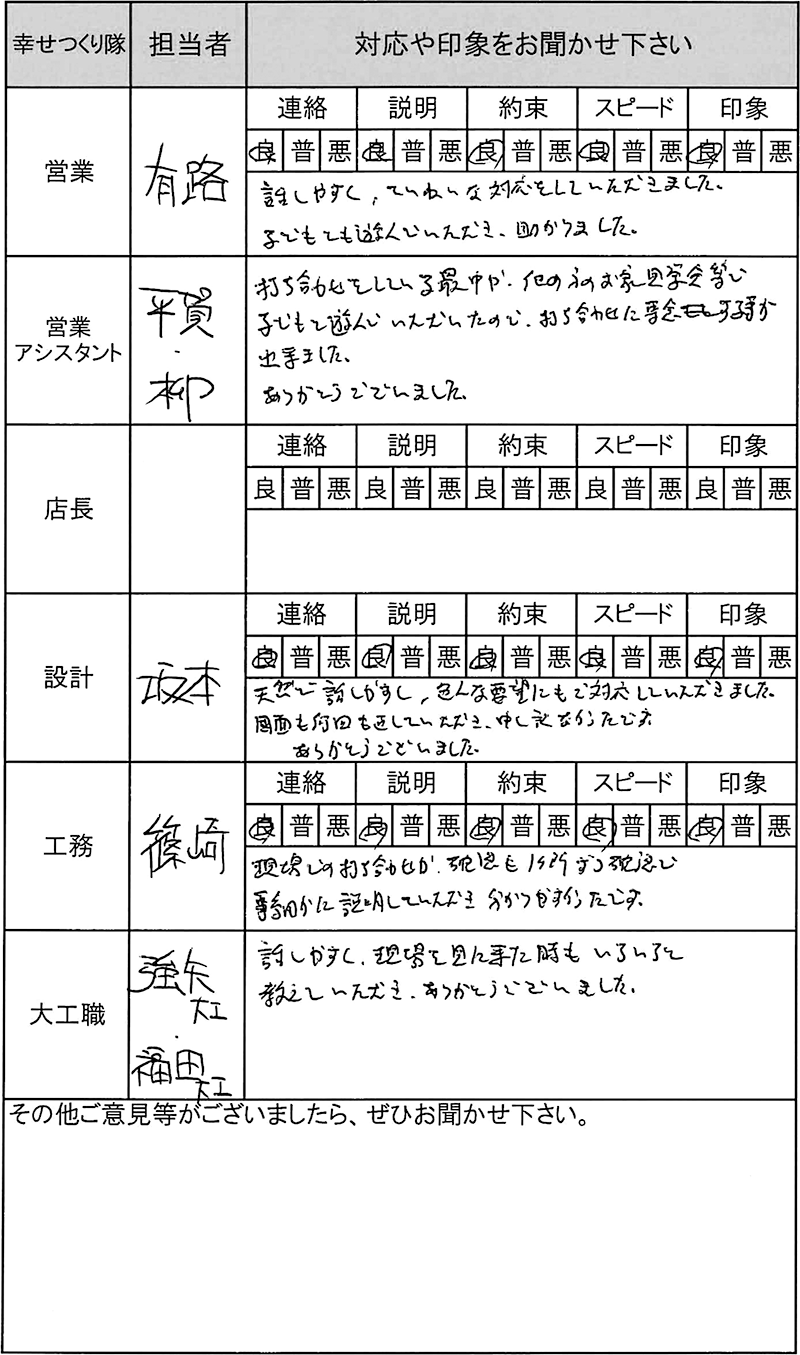 幸せつくり隊 担当者 対応や印象をお聞かせ下さい
営業 有路
連絡 説明 約束 スピード 印象
良 普 悪 良 普 悪 良 普 悪 良 普 悪 良 普 悪
話しやすく、ていねいな対応をしていただきました。
子どもとも遊んでいただき、助かりました。
営業アシスタント 平賀・柳
打ち合わせをしている最中や、他の方のお家見学会等で
子どもと遊んでいただいたので、打ち合わせに専念する事が
出来ました。
ありがとうございました。
店長
連絡 説明 約束 スピード 印象
良 普 悪 良 普 悪 良 普 悪 良 普 悪 良 普 悪
設計 坂本
連絡 説明 約束 スピード 印象
良 普 悪 良 普 悪 良 普 悪 良 普 悪 良 普 悪
天然で話しやすし、色んな要望にもご対応していただきました。
図面も何回も直していただき、申し訳なかったです。
ありがとうございました。
工務 篠崎
連絡 説明 約束 スピード 印象
良 普 悪 良 普 悪 良 普 悪 良 普 悪 良 普 悪
現場での打ち合わせが、確認も1ヶ所ずつ確認で
事細かに説明していただき 分かりやすかったです。
大工職 強矢大工・福田大工
話しやすく、現場を見に来た時も いろいろと
教えていただき、ありがとうございました。
その他ご意見等がございましたら、ぜひお聞かせ下さい。